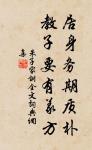 居身务期质朴
教子要有义方
朱子家训全文词典网
集